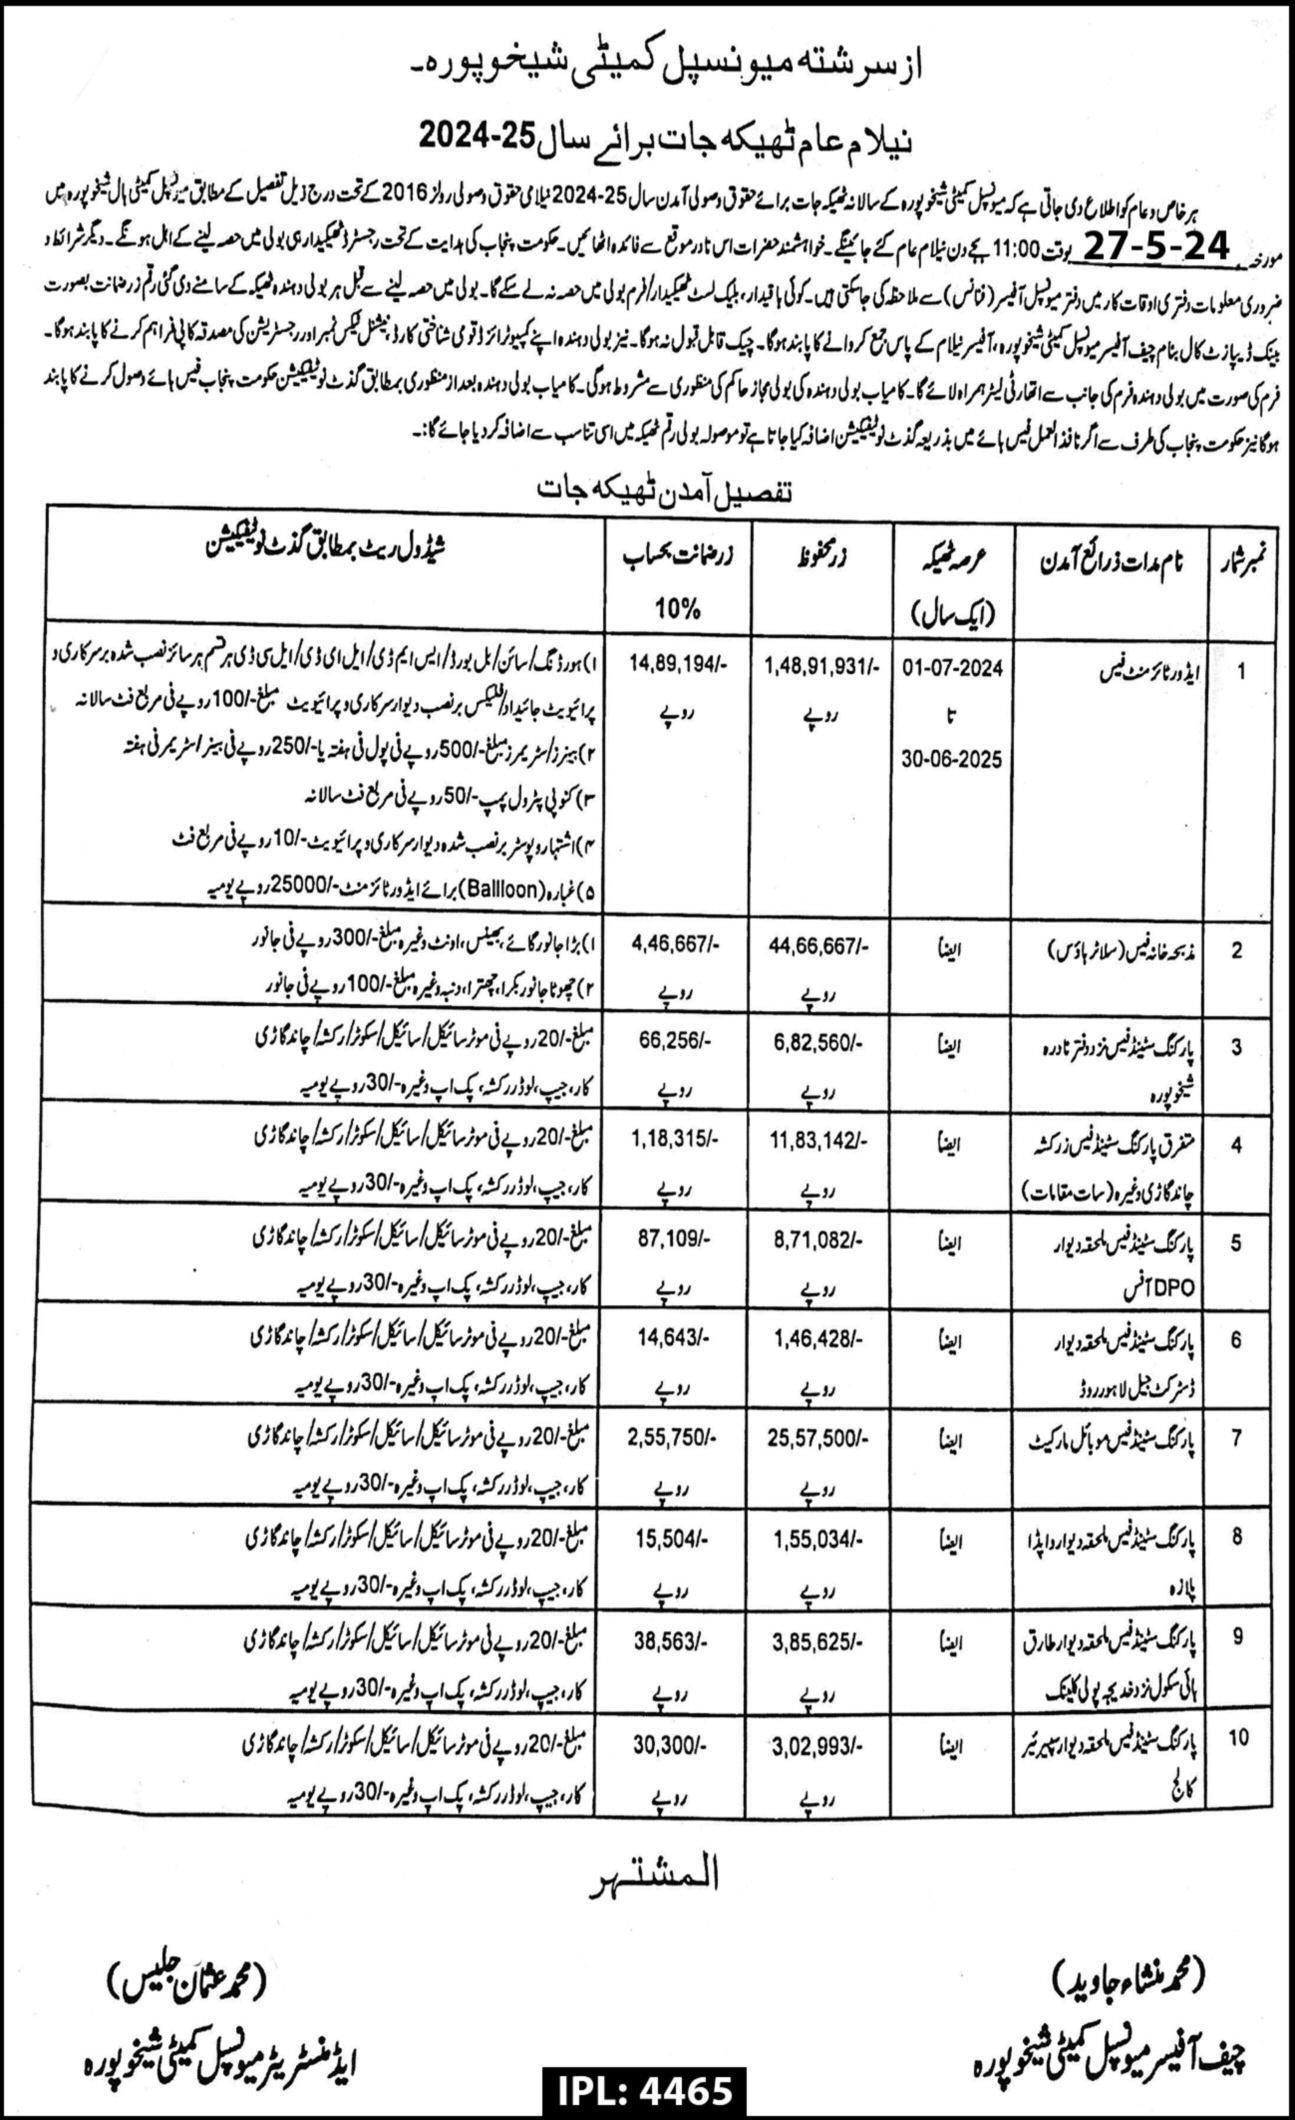 از سر رشتہ میونسپل کمیٹی شیخوپورہ۔
نیلام عام ٹھیکہ جات برائے سال 2024-25
ہر خاص و عام کو اطلاع دی جاتی ہے کہ میونسپل کمیٹی شیخوپورہ کے سالانہ ٹھیکہ جات برائے حقوق وصولی آمدن سال 2024-25 نیلامی حقوق وصولی رولز 2016 کے تحت درج ذیل تفصیل کے مطابق میونسپل کمیٹی ہال شیخوپورہ میں
مورخہ 27-5-24 بوقت 11:00 بجے دن نیلام عام کئے جائینگے۔ خواہشمند حضرات اس نادر موقع سے فائدہ اٹھائیں۔ حکومت پنجاب کی ہدایت کے تحت رجسٹرڈ ٹھیکیدار ہی بولی میں حصہ لینے کے اہل ہونگے۔ دیگر شرائط و
ضروری معلومات دفتری اوقات کار میں دفتر میونسپل آفیسر (فنانس) سے ملاحظہ کی جاسکتی ہیں۔ کوئی باقیدار، بلیک لسٹ ٹھیکیدار/فرم بولی میں حصہ نہ لے سکے گا۔ بولی میں حصہ لینے سے قبل ہر بولی دہندہ ٹھیکہ کے سامنے دی گئی رقم زر ضمانت بصورت
بینک ڈیپازٹ کال بنام چیف آفیسر میونسپل کمیٹی شیخوپورہ، آفیسر نیلام کے پاس جمع کروانے کا پابند ہوگا۔ چیک قابل قبول نہ ہوگا۔ نیز بولی دہندہ اپنے کمپیوٹرائزڈ قومی شناختی کارڈ، نیشنل ٹیکس نمبر اور رجسٹریشن کی مصدقہ کاپی فراہم کرنے کا پابند ہوگا۔
فرم کی صورت میں بولی دہندہ فرم کی جانب سے اتھارٹی لیٹر ہمراہ لائے گا۔ کامیاب بولی دہندہ کی بولی مجاز حاکم کی منظوری سے مشروط ہوگی۔ کامیاب بولی دہندہ بعد از منظوری بمطابق گذٹ نوٹیفکیشن حکومت پنجاب فیس ہائے وصول کرنے کا پابند
ہوگا نیز حکومت پنجاب کی طرف سے اگر نافذ العمل فیس ہائے میں بذریعہ گذٹ نوٹیفکیشن اضافہ کیا جاتا ہے تو موصولہ بولی رقم ٹھیکہ میں اسی تناسب سے اضافہ کر دیا جائے گا:۔
تفصیل آمدن ٹھیکہ جات
نمبر شمار نام مدات ذرائع آمدن عرصہ ٹھیکہ زر محفوظ زر ضمانت بحساب شیڈول ریٹ بمطابق گذٹ نوٹیفکیشن
(ایک سال) 10%
1 ایڈورٹائزمنٹ فیس 01-07-2024 1,48,91,931/- 14,89,194/- ۱) ہورڈنگ/سائن/بل بورڈ/ایس ایم ڈی/ایل ای ڈی/ایل سی ڈی ہر قسم ہر سائز نصب شدہ بر سرکاری و
تا روپے روپے پرائیویٹ جائیداد/فلیکس بر نصب دیوار سرکاری و پرائیویٹ مبلغ -/100 روپے فی مربع فٹ سالانہ
30-06-2025 ۲) بینرز/سٹریمرز مبلغ -/500 روپے فی پول فی ہفتہ یا -/250 روپے فی بینر/سٹریمر فی ہفتہ
۳) کنوپی پٹرول پمپ -/50 روپے فی مربع فٹ سالانہ
۴) اشتہار و پوسٹر بر نصب شدہ دیوار سرکاری و پرائیویٹ -/10 روپے فی مربع فٹ
۵) غبارہ (Ballloon) برائے ایڈورٹائزمنٹ -/25000 روپے یومیہ
2 مذبحہ خانہ فیس (سلاٹر ہاؤس) ایضاً 44,66,667/- 4,46,667/- ۱) بڑا جانور گائے، بھینس، اونٹ وغیرہ مبلغ -/300 روپے فی جانور
روپے روپے ۲) چھوٹا جانور بکرا، چھترا، دنبہ وغیرہ مبلغ -/100 روپے فی جانور
3 پارکنگ سٹینڈ فیس نزد دفتر نادرہ ایضاً 6,82,560/- 66,256/- مبلغ -/20 روپے فی موٹر سائیکل/سائیکل/سکوٹر/رکشہ/چاند گاڑی
شیخوپورہ روپے روپے کار، جیپ، لوڈر رکشہ، پک اپ وغیرہ -/30 روپے یومیہ
4 متفرق پارکنگ سٹینڈ فیس زرکشہ ایضاً 11,83,142/- 1,18,315/- مبلغ -/20 روپے فی موٹر سائیکل/سائیکل/سکوٹر/رکشہ/چاند گاڑی
چاند گاڑی وغیرہ (سات مقامات) روپے روپے کار، جیپ، لوڈر رکشہ، پک اپ وغیرہ -/30 روپے یومیہ
5 پارکنگ سٹینڈ فیس ملحقہ دیوار ایضاً 8,71,082/- 87,109/- مبلغ -/20 روپے فی موٹر سائیکل/سائیکل/سکوٹر/رکشہ/چاند گاڑی
DPO آفس روپے روپے کار، جیپ، لوڈر رکشہ، پک اپ وغیرہ -/30 روپے یومیہ
6 پارکنگ سٹینڈ فیس ملحقہ دیوار ایضاً 1,46,428/- 14,643/- مبلغ -/20 روپے فی موٹر سائیکل/سائیکل/سکوٹر/رکشہ/چاند گاڑی
ڈسٹرکٹ جیل لاہور روڈ روپے روپے کار، جیپ، لوڈر رکشہ، پک اپ وغیرہ -/30 روپے یومیہ
7 پارکنگ سٹینڈ فیس موبائل مارکیٹ ایضاً 25,57,500/- 2,55,750/- مبلغ -/20 روپے فی موٹر سائیکل/سائیکل/سکوٹر/رکشہ/چاند گاڑی
روپے روپے کار، جیپ، لوڈر رکشہ، پک اپ وغیرہ -/30 روپے یومیہ
8 پارکنگ سٹینڈ فیس ملحقہ دیوار واپڈا ایضاً 1,55,034/- 15,504/- مبلغ -/20 روپے فی موٹر سائیکل/سائیکل/سکوٹر/رکشہ/چاند گاڑی
پلازہ روپے روپے کار، جیپ، لوڈر رکشہ، پک اپ وغیرہ -/30 روپے یومیہ
9 پارکنگ سٹینڈ فیس ملحقہ دیوار طارق ایضاً 3,85,625/- 38,563/- مبلغ -/20 روپے فی موٹر سائیکل/سائیکل/سکوٹر/رکشہ/چاند گاڑی
ہائی سکول نزد خدیجہ پولی کلینک روپے روپے کار، جیپ، لوڈر رکشہ، پک اپ وغیرہ -/30 روپے یومیہ
10 پارکنگ سٹینڈ فیس ملحقہ دیوار سپیرئیر ایضاً 3,02,993/- 30,300/- مبلغ -/20 روپے فی موٹر سائیکل/سائیکل/سکوٹر/رکشہ/چاند گاڑی
کالج روپے روپے کار، جیپ، لوڈر رکشہ، پک اپ وغیرہ -/30 روپے یومیہ
المشتہر
(محمد منشاء جاوید) (محمد عثمان جلیس)
چیف آفیسر میونسپل کمیٹی شیخوپورہ ایڈمنسٹریٹر میونسپل کمیٹی شیخوپورہ
IPL: 4465